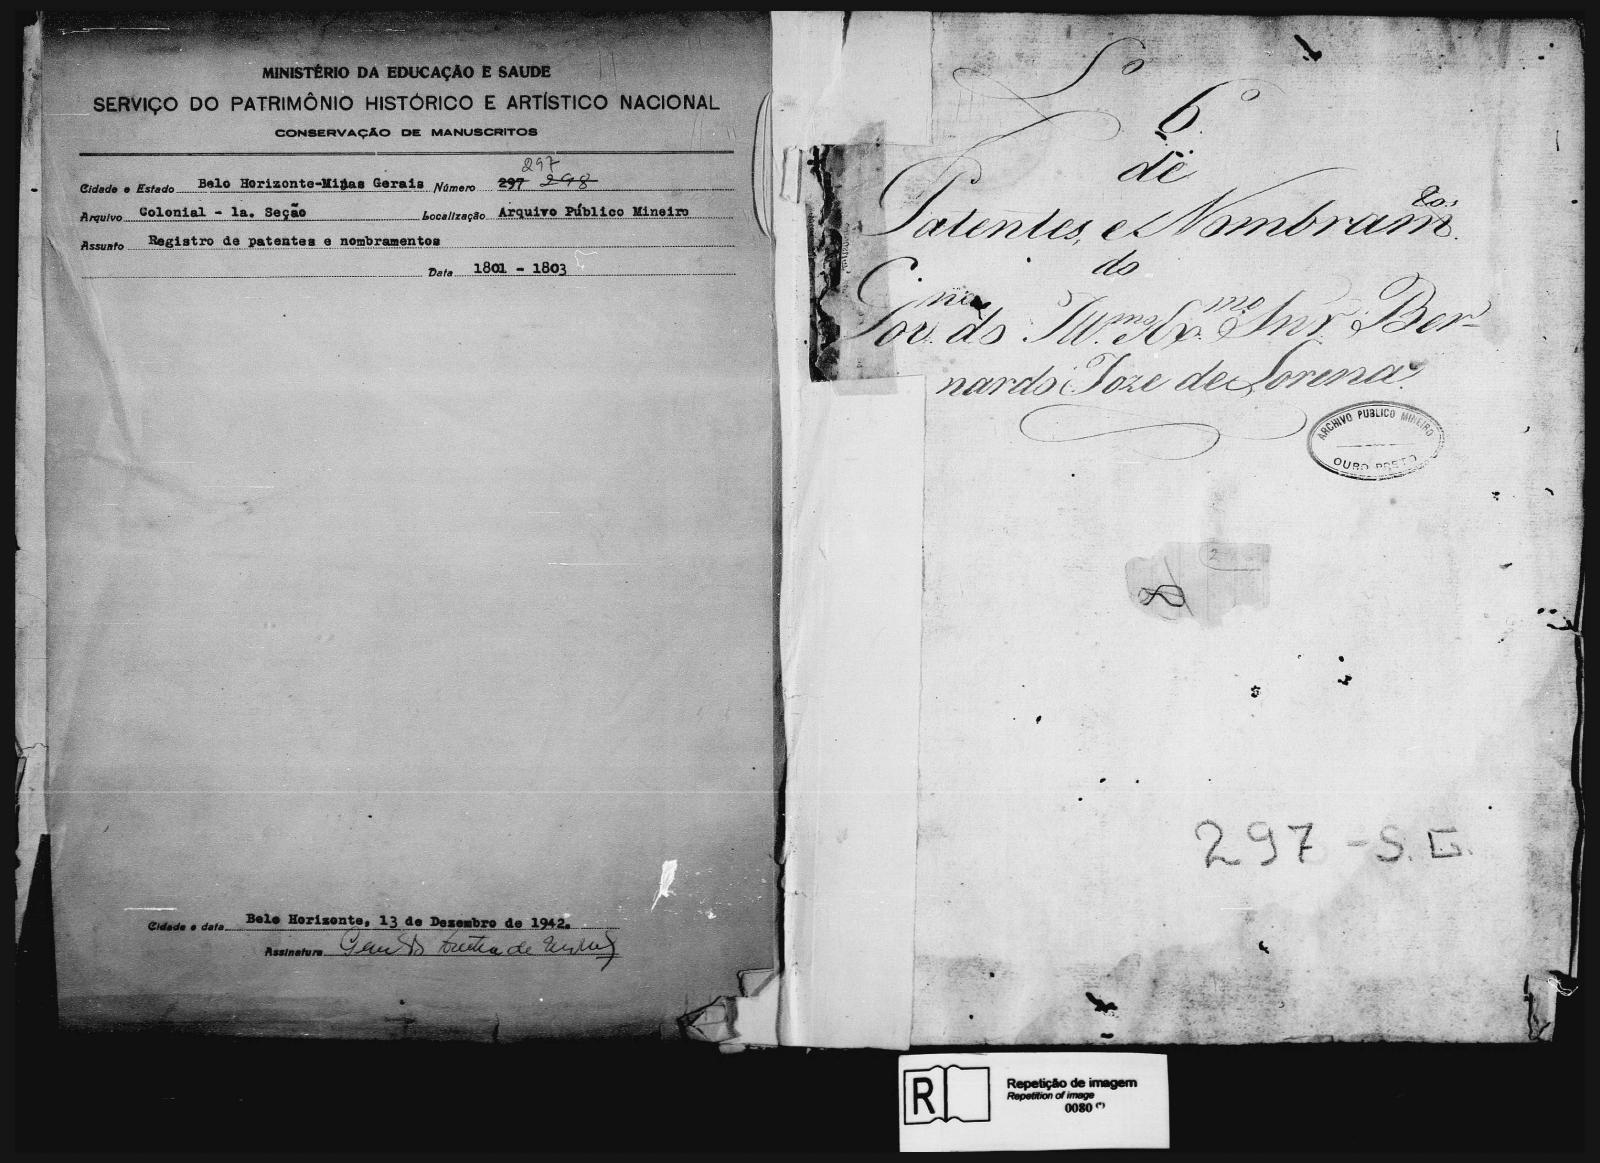 MINISTÉRIO DA EDUCAÇÃO E SAUDE
SERVIÇO DO PATRIMÔNIO HISTÓRICO E ARTÍSTICO NACIONAL
CONSERVAÇÃO DE MANUSCRITOS
297
Cidade e Estado Belo Horizonte-Minas Gerais Número 297 298
Arquivo Colonial - 1a. Seção Localização Arquivo Público Mineiro
Assunto Registro de patentes e nombramentos
Data 1801 - 1803
Cidade e data Belo Horizonte, 13 de Dezembro de 1942.
Assinatura
Lo
6º
de
Patentes, e Nombram.tos
do
Gov.no do Ill.mo Ex.mo Snr. Ber-
nardo Joze de Lorena.
ARCHIVO PUBLICO MINEIRO
OURO PRETO
2
297 - S. G.
R
Repetição de imagem
Repetition of image
0080 (*)